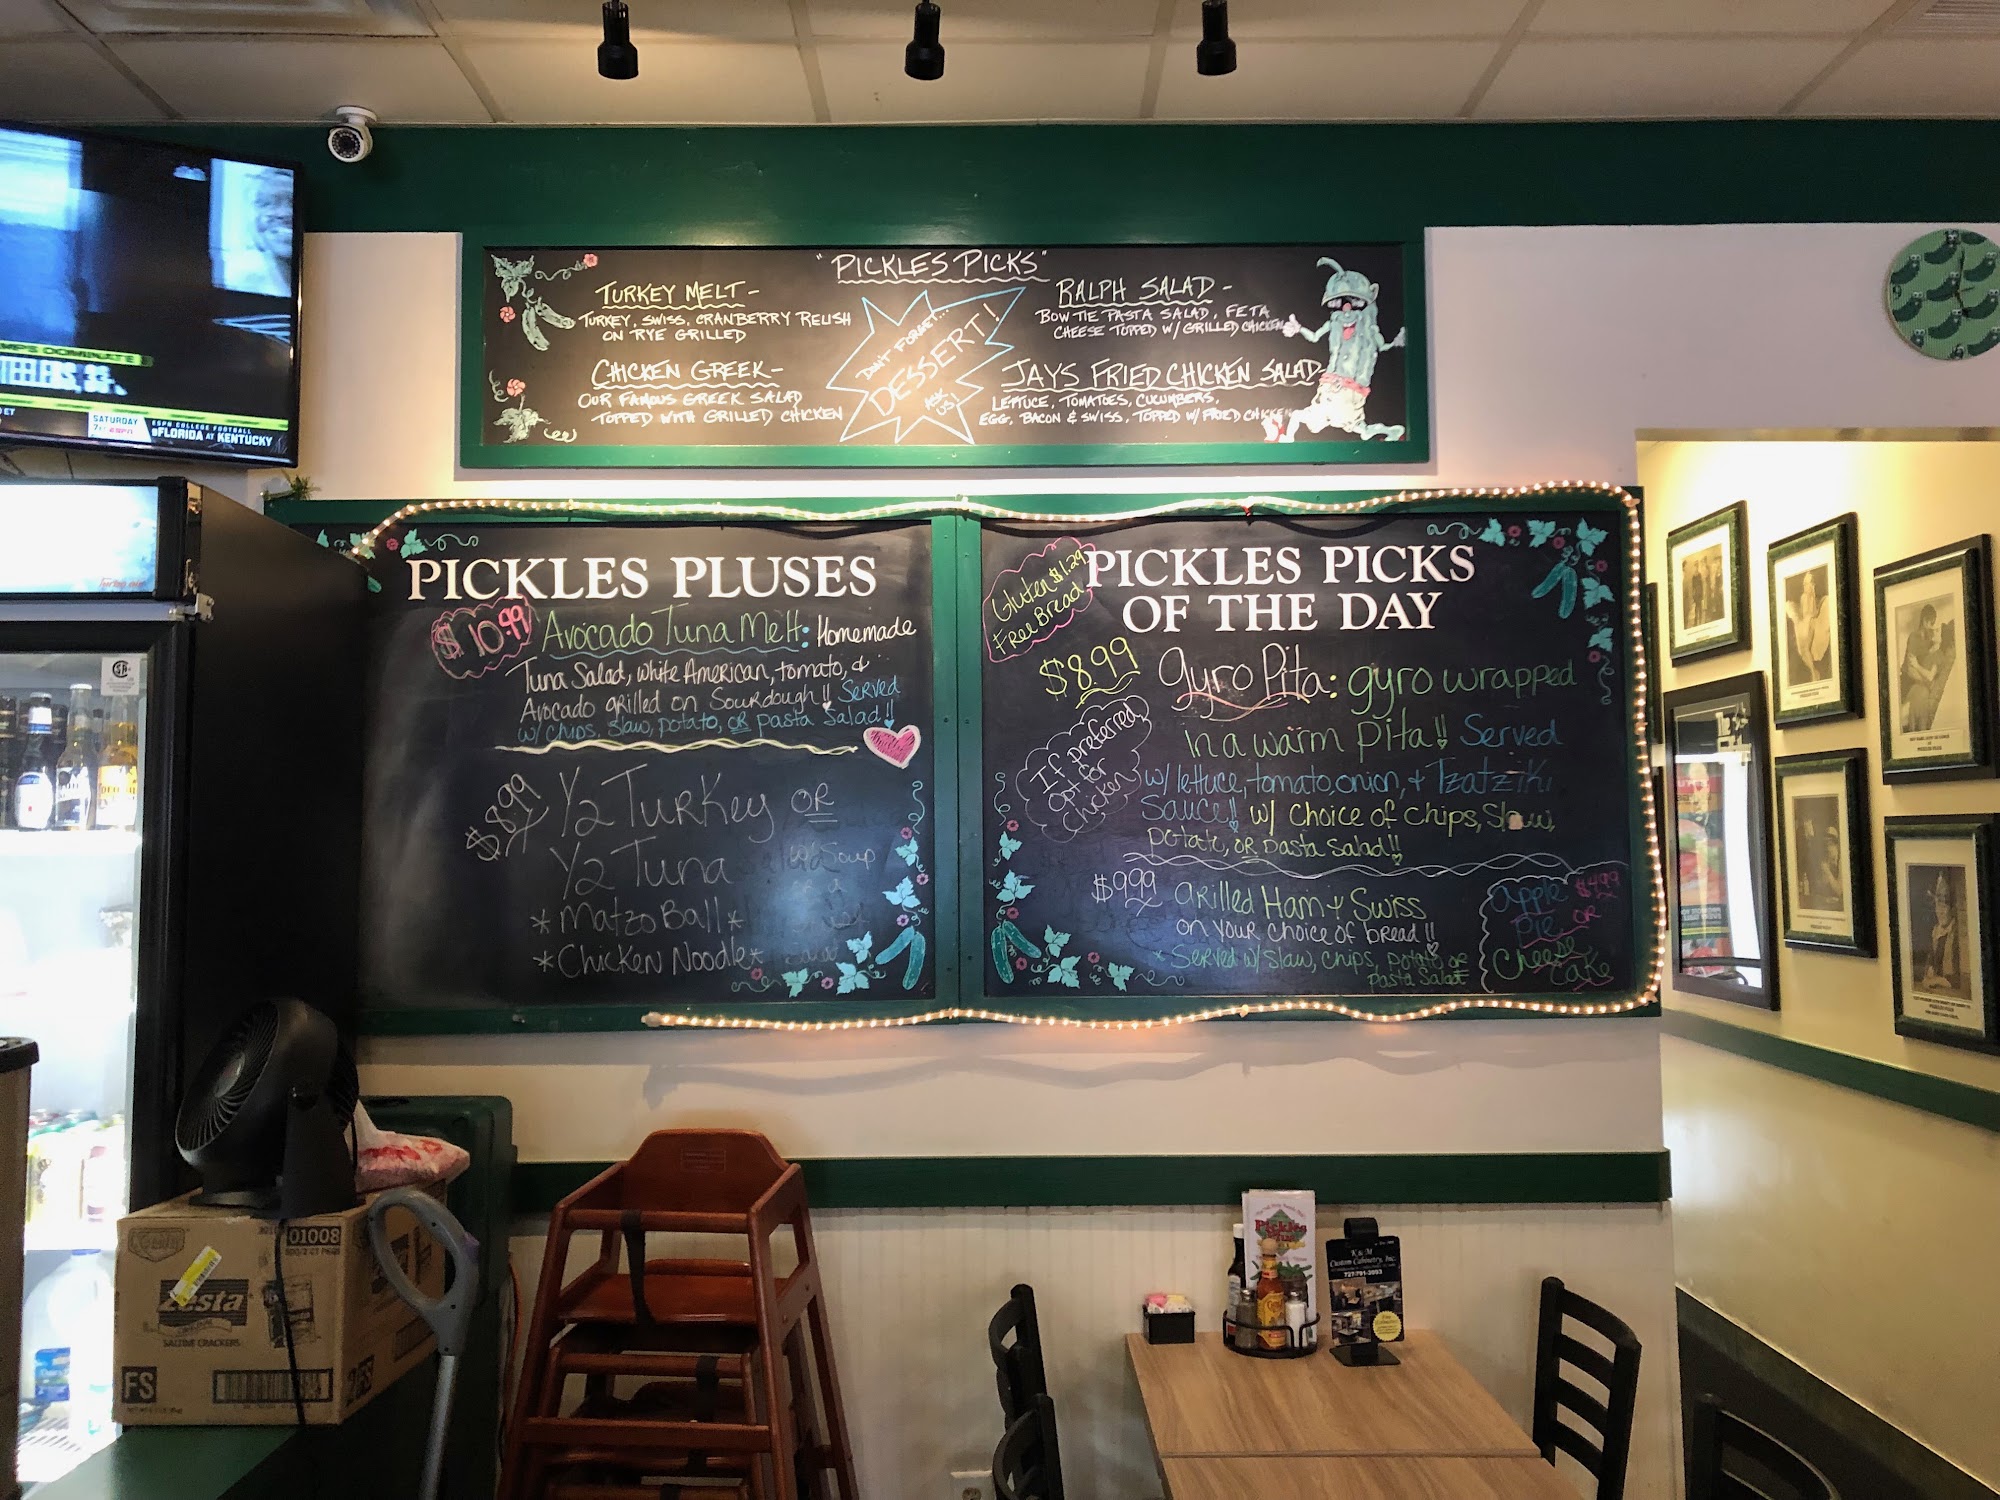 "PICKLES PICKS"
TURKEY MELT -
TURKEY, SWISS, CRANBERRY RELISH
ON RYE GRILLED
CHICKEN GREEK -
OUR FAMOUS GREEK SALAD
TOPPED WITH GRILLED CHICKEN
DON'T FORGET...
DESSERT!
ASK US!
RALPH SALAD -
BOW TIE PASTA SALAD, FETA
CHEESE TOPPED W/ GRILLED CHICKEN
JAYS FRIED CHICKEN SALAD -
LETTUCE, TOMATOES, CUCUMBERS,
EGG, BACON & SWISS, TOPPED W/ FRIED CHICKEN
PICKLES PLUSES
$10.99 Avocado Tuna Melt: Homemade
Tuna Salad, white American, tomato, &
Avocado grilled on Sourdough!! Served
w/ chips, slaw, potato, OR pasta Salad!!
$8.99 1/2 Turkey OR
1/2 Tuna
w/ Soup
*Matzo Ball*
*Chicken Noodle*
PICKLES PICKS
OF THE DAY
Gluten $1.29
Free Bread
$8.99 Gyro Pita: gyro wrapped
in a warm pita!! Served
w/ lettuce, tomato, onion, + Tzatziki
Sauce!! w/ choice of chips, Slaw,
potato, OR pasta Salad!!
If preferred,
opt for
chicken
$9.99 Grilled Ham + Swiss
on your choice of bread!!
* Served w/ slaw, chips, potato or
pasta Salad
Apple $4.99
Pie OR
Cheese
Cake
SATURDAY
7 ET ESPN
ESPN COLLEGE FOOTBALL
FLORIDA AT KENTUCKY
01008
Zesta
SALTINE CRACKERS
FS
Pickles
Plus
K & M
Custom Cabinetry, Inc.
727-791-3993